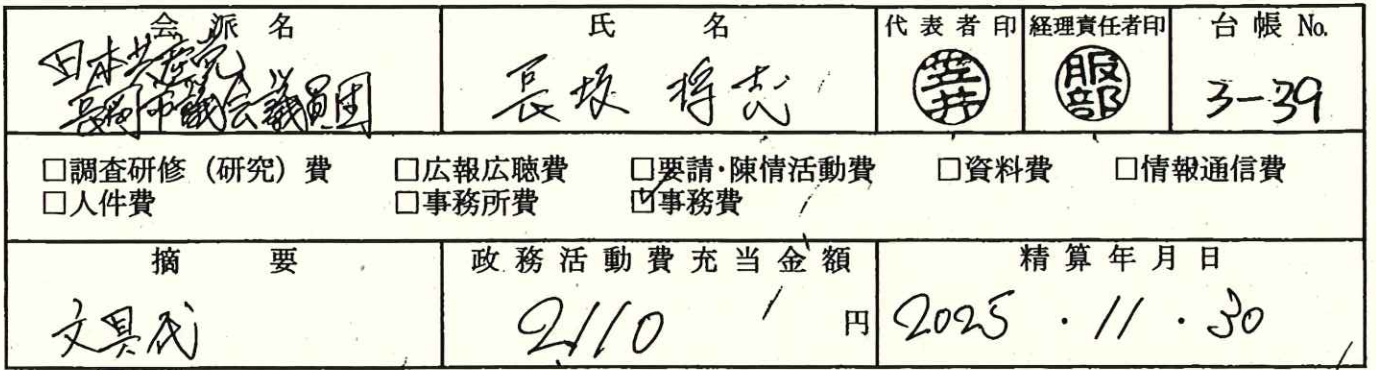 会派名 氏名 代表者印 経理責任者印 台帳 No.
日本共産党
長岡市議会議員団 長坂 将志 笠井 服部 3-39
□調査研修（研究）費 □広報広聴費 □要請・陳情活動費 □資料費 □情報通信費
□人件費 □事務所費 ☑事務費
摘要 政務活動費充当金額 精算年月日
文具代 2110 円 2025・11・30